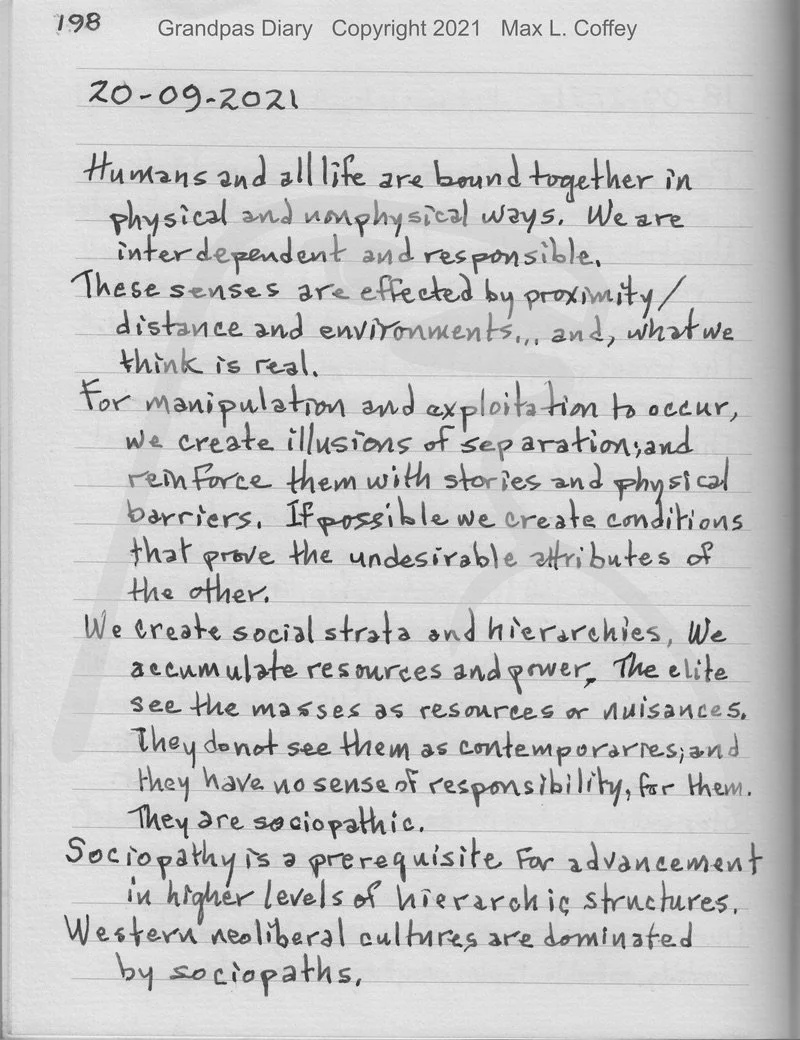 198
Grandpas Diary Copyright 2021 Max L. Coffey
20-09-2021
Humans and all life are bound together in
physical and nonphysical ways. We are
interdependent and responsible.
These senses are effected by proximity/
distance and environments... and, what we
think is real.
For manipulation and exploitation to occur,
we create illusions of separation; and
reinforce them with stories and physical
barriers. If possible we create conditions
that prove the undesirable attributes of
the other.
We create social strata and hierarchies. We
accumulate resources and power. The elite
see the masses as resources or nuisances.
They do not see them as contemporaries; and
they have no sense of responsibility, for them.
They are sociopathic.
Sociopathy is a prerequisite for advancement
in higher levels of hierarchic structures.
Western neoliberal cultures are dominated
by sociopaths.